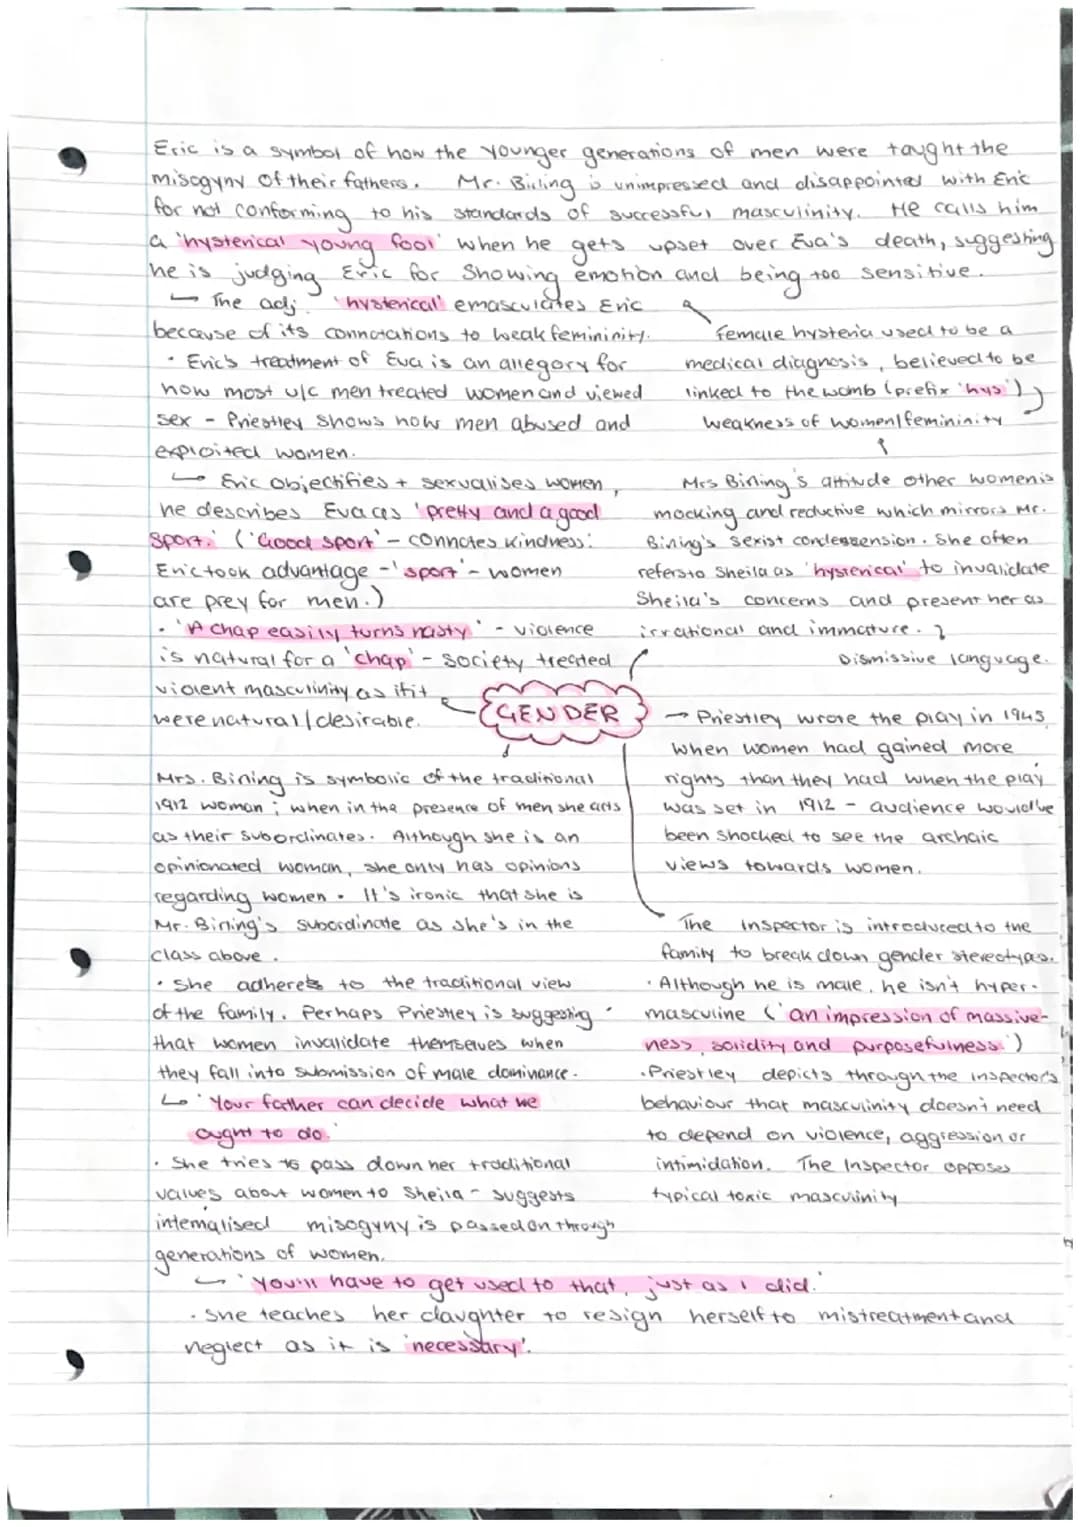 Eric is a symbol of how the younger generations of men were taught the
misogyny of their fathers. Mr. Birling is unimpressed and disappointed with Eric
for not conforming to his standards of successful masculinity. He calls him
a 'hysterical young fool' when he gets upset over Eva's death, suggesting
he is judging Eric for showing emotion and being too sensitive.
↳ The adj. 'hysterical' emasculates Eric
because of its connotations to weak femininity.
• Eric's treatment of Eva is an allegory for
how most u/c men treated women and viewed
sex - Priestley shows how men abused and
exploited women.
↳ Eric objectifies + sexualises women,
he describes Eva as 'pretty and a good
sport.' ('Good sport' - connotes kindness:
Eric took advantage - 'sport' - women
are prey for men.)
• 'A chap easily turns nasty' - violence
is natural for a 'chap' - society treated
violent masculinity as if it
were natural/desirable.
Female hysteria used to be a
medical diagnosis, believed to be
linked to the womb (prefix 'hys')
weakness of women/femininity
Mrs Birling's attitude other women is
mocking and reductive which mirrors Mr.
Birling's sexist condescension. She often
refers to Sheila as 'hysterical' to invalidate
Sheila's concerns and present her as
irrational and immature.
Dismissive language.
GENDER
→ Priestley wrote the play in 1945,
when women had gained more
rights than they had when the play
was set in 1912 - audience would've
been shocked to see the archaic
views towards women.
Mrs. Birling is symbolic of the traditional
1912 woman; when in the presence of men she acts
as their subordinates. Although she is an
opinionated woman, she only has opinions
regarding women. It's ironic that she is
Mr. Birling's subordinate as she's in the
class above.
• She adheres to the traditional view
of the family. Perhaps Priestley is suggesting
that women invalidate themselves when
they fall into submission of male dominance.
↳ 'Your father can decide what we
ought to do.'
• She tries to pass down her traditional
values about women to Sheila - suggests
internalised misogyny is passed on through
generations of women.
↳ 'You'll have to get used to that, just as I did.'
• She teaches her daughter to resign herself to mistreatment and
neglect as it is 'necessary'.
The Inspector is introduced to the
family to break down gender stereotypes.
• Although he is male, he isn't hyper-
masculine ('an impression of massive-
ness, solidity and purposefulness.')
• Priestley depicts through the Inspector's
behaviour that masculinity doesn't need
to depend on violence, aggression or
intimidation. The Inspector opposes
typical toxic masculinity